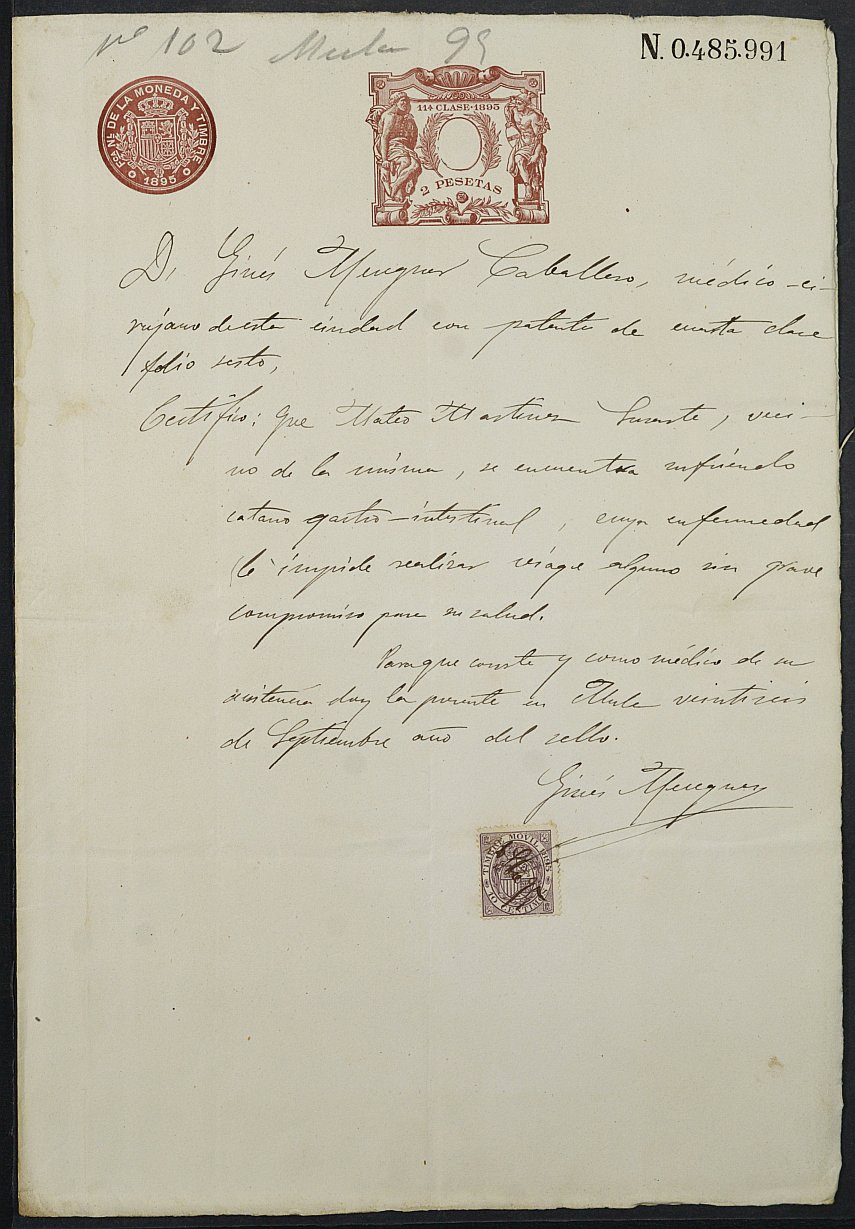 nº 102 Mula 95
N. 0.485.991
FCA. NL. DE LA MONEDA Y TIMBRE
1895
11ª CLASE·1895
2 PESETAS
D. Ginés Menguez Caballero, médico-ci-
rujano de esta ciudad con patente de cuarta clase
folio sesto,
Certifico: Que Mateo Martínez , veci-
no de la misma, se encuentra sufriendo
cataro gastro-intestinal, cuya enfermedad
le impide realizar viage alguno sin grave
compromiso para su salud.
Para que conste y como médico de su
asistencia doy la presente en Mula veintiseis
de Septiembre año del sello.
Ginés Menguez
TIMBRE MOVIL 1895
10 CENTIMOS